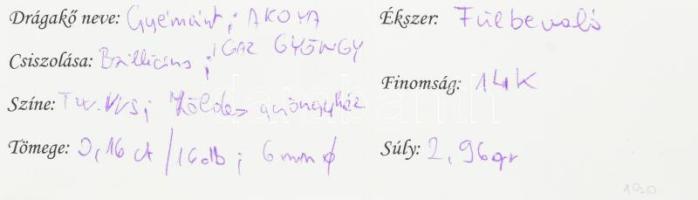 Drágakő neve: Gyémánt; AKOYA
IGAZ GYÖNGY
Csiszolása: Briliáns;
Színe: TW.VVS; Zöldes gyöngyház
Tömege: 0,16 ct / 16 db; 6 mm ϕ
Ékszer: Fülbevaló
Finomság: 14K
Súly: 2,96gr